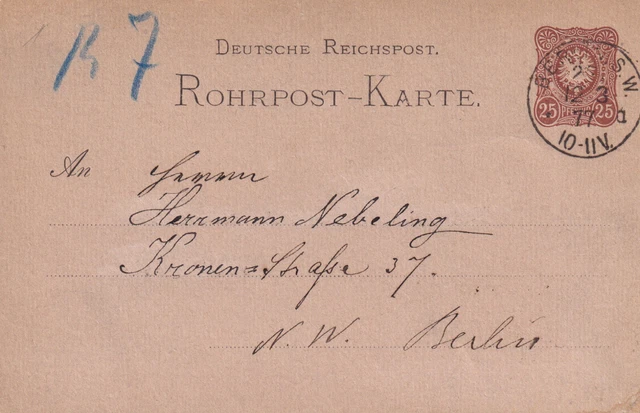 DEUTSCHE REICHSPOST.
ROHRPOST-KARTE.
7
25 PFENNIG 25
BERLIN S.W.
12 3
77
10-11V.
An Herrn
Herrmann Nebeling
Kronen=Straße 37.
N. W. Berlin